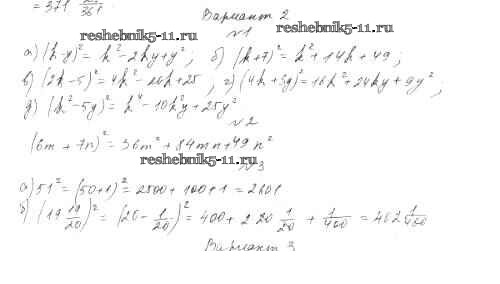 = 371 1/361.
Вариант 2
reshebnik5-11.ru
№1
а) (k-y)² = k² - 2ky + y²; б) (k+7)² = k² + 14k + 49;
в) (2k-5)² = 4k² - 20k + 25, г) (4k+3y)² = 16k² + 24ky + 9y²;
д) (k²-5y)² = k⁴ - 10k²y + 25y²
№2
(6m + 7n)² = 36m² + 84mn + 49n²
reshebnik5-11.ru
№3
а) 51² = (50+1)² = 2500 + 100 + 1 = 2601
б) (19 19/20)² = (20 - 1/20)² = 400 + 2 20 1/20 + 1/400 = 402 1/400
Вариант 3